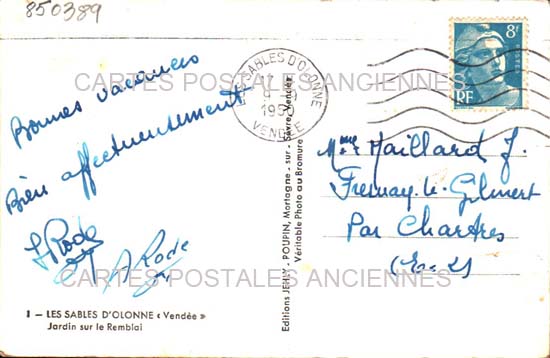 850389
8F
RF
LES SABLES D'OLONNE
17
VENDÉE
CARTES POSTALES ANCIENNES
Bonnes vacances
Bien affectueusement
Rode
A Rode
Mme Maillard J.
Fresnay-le-Gilmert
Par Chartres
(E-&-L)
Editions JEHLY-POUPIN, Mortagne-sur-Sèvre, Vendée
Véritable Photo au Bromure
CARTES POSTALES ANCIENNES
1 — LES SABLES D'OLONNE « Vendée »
Jardin sur le Remblai